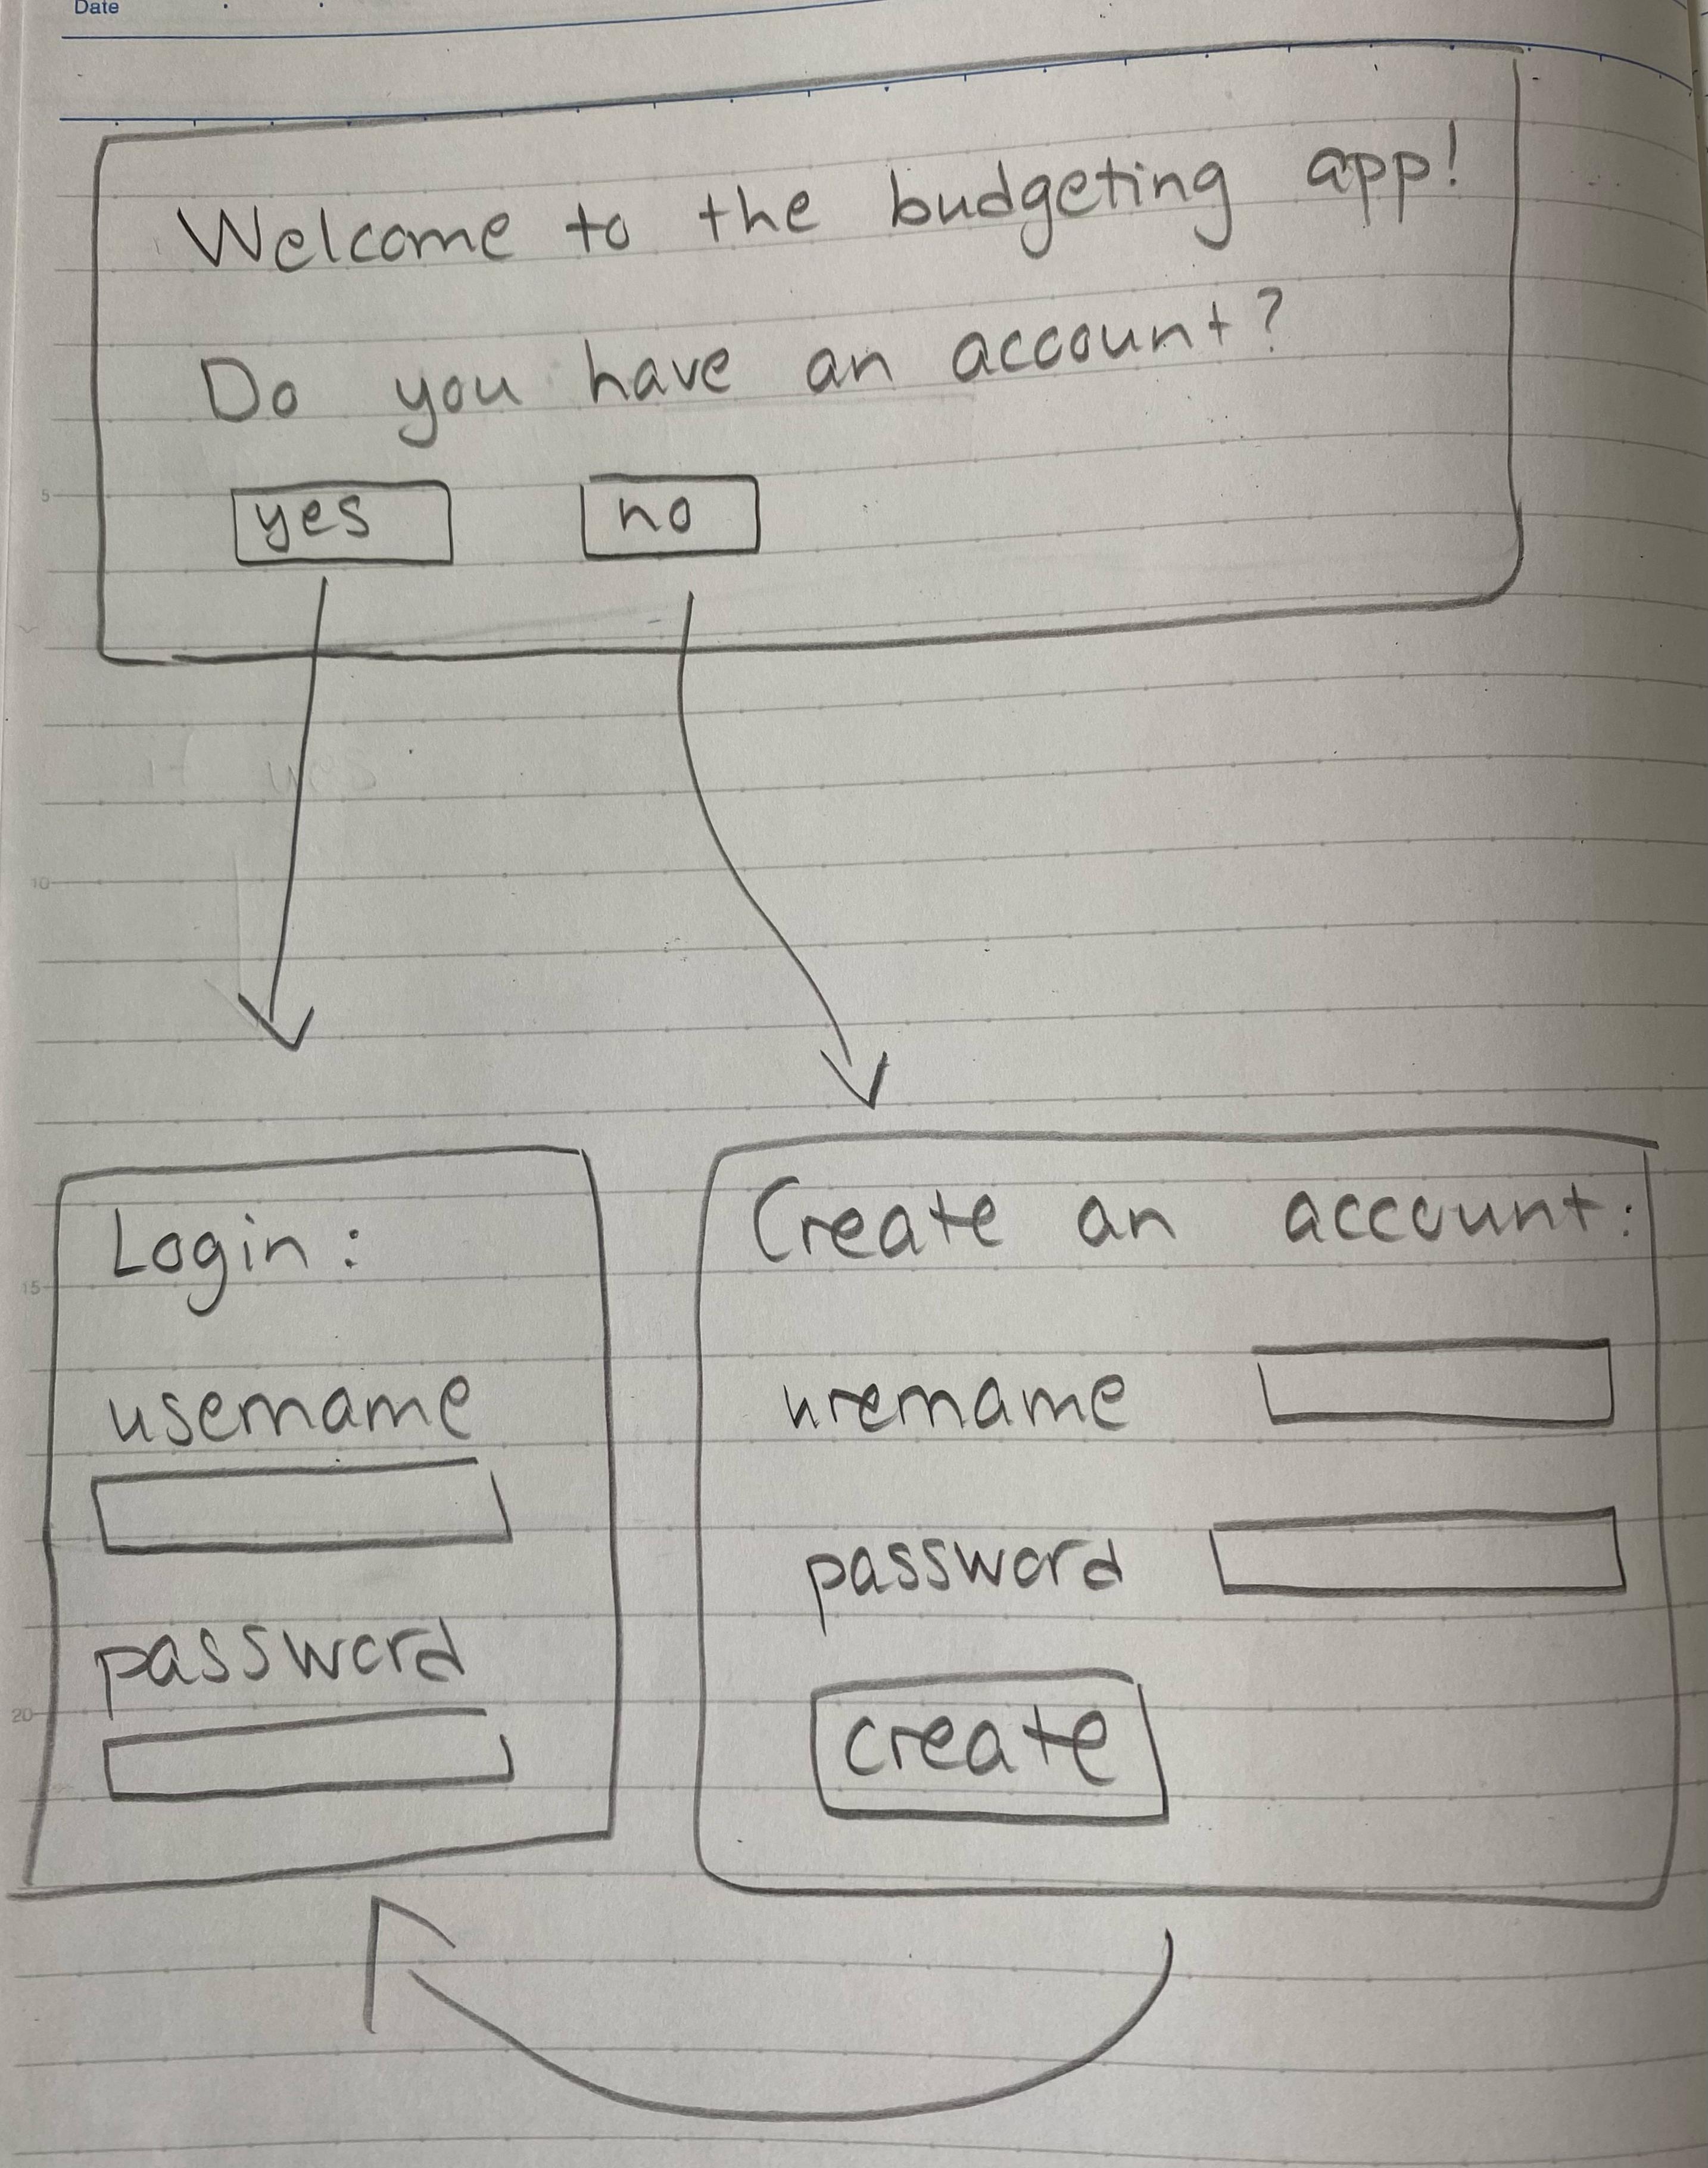 Date
Welcome to the budgeting app!
Do you have an account?
yes no
5
10
Login:
username
password
Create an account:
uremame
password
create
15
20